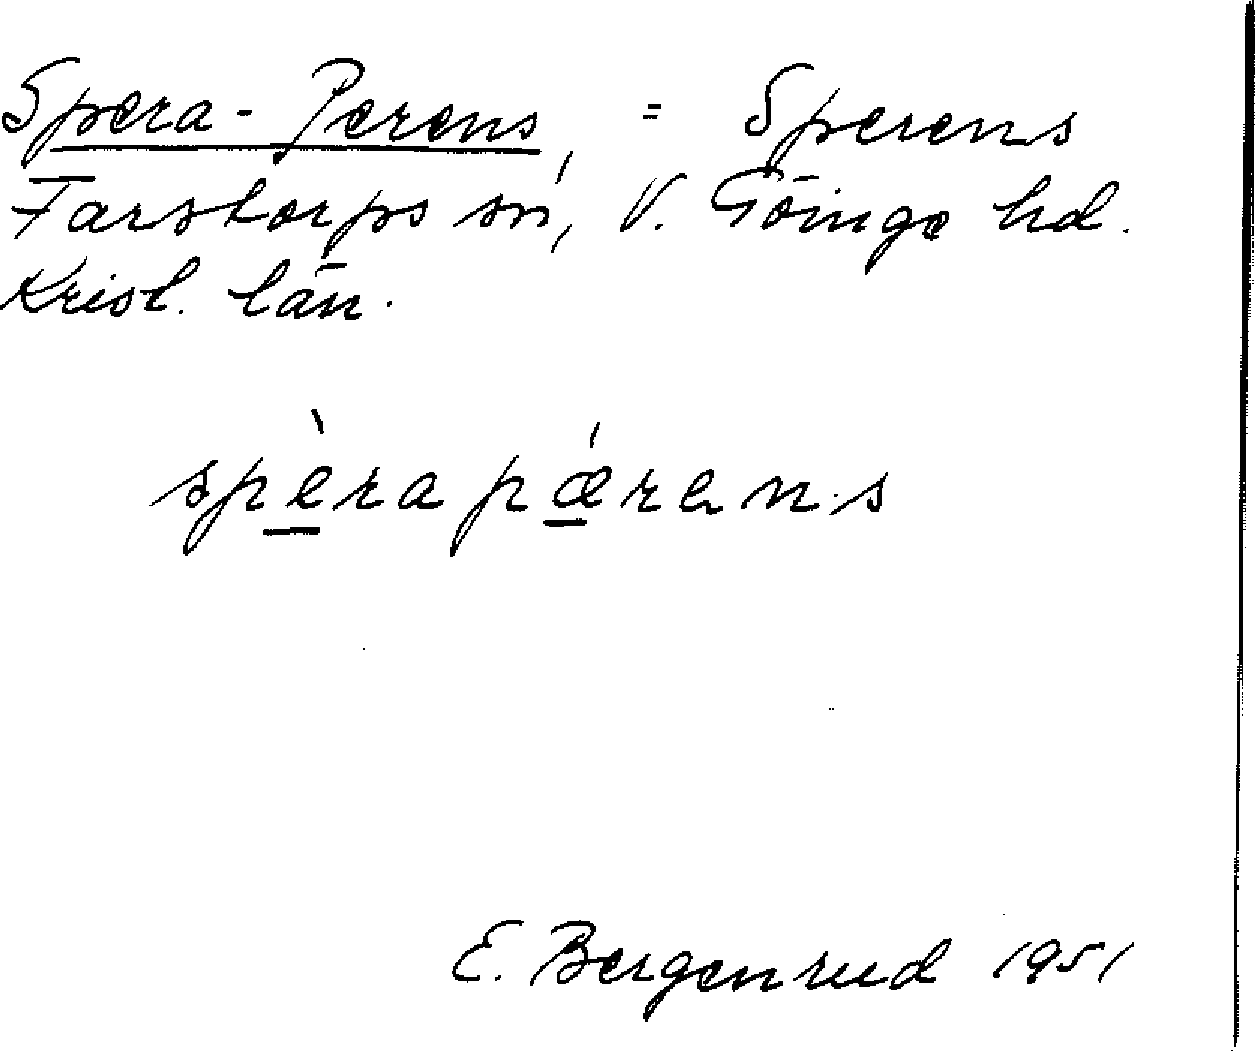 Spera-Perens = Sperens
Farstorps sn, V. Göinge hd.
Krist. län.
spèrapǽrens
E. Bergenrud 1951